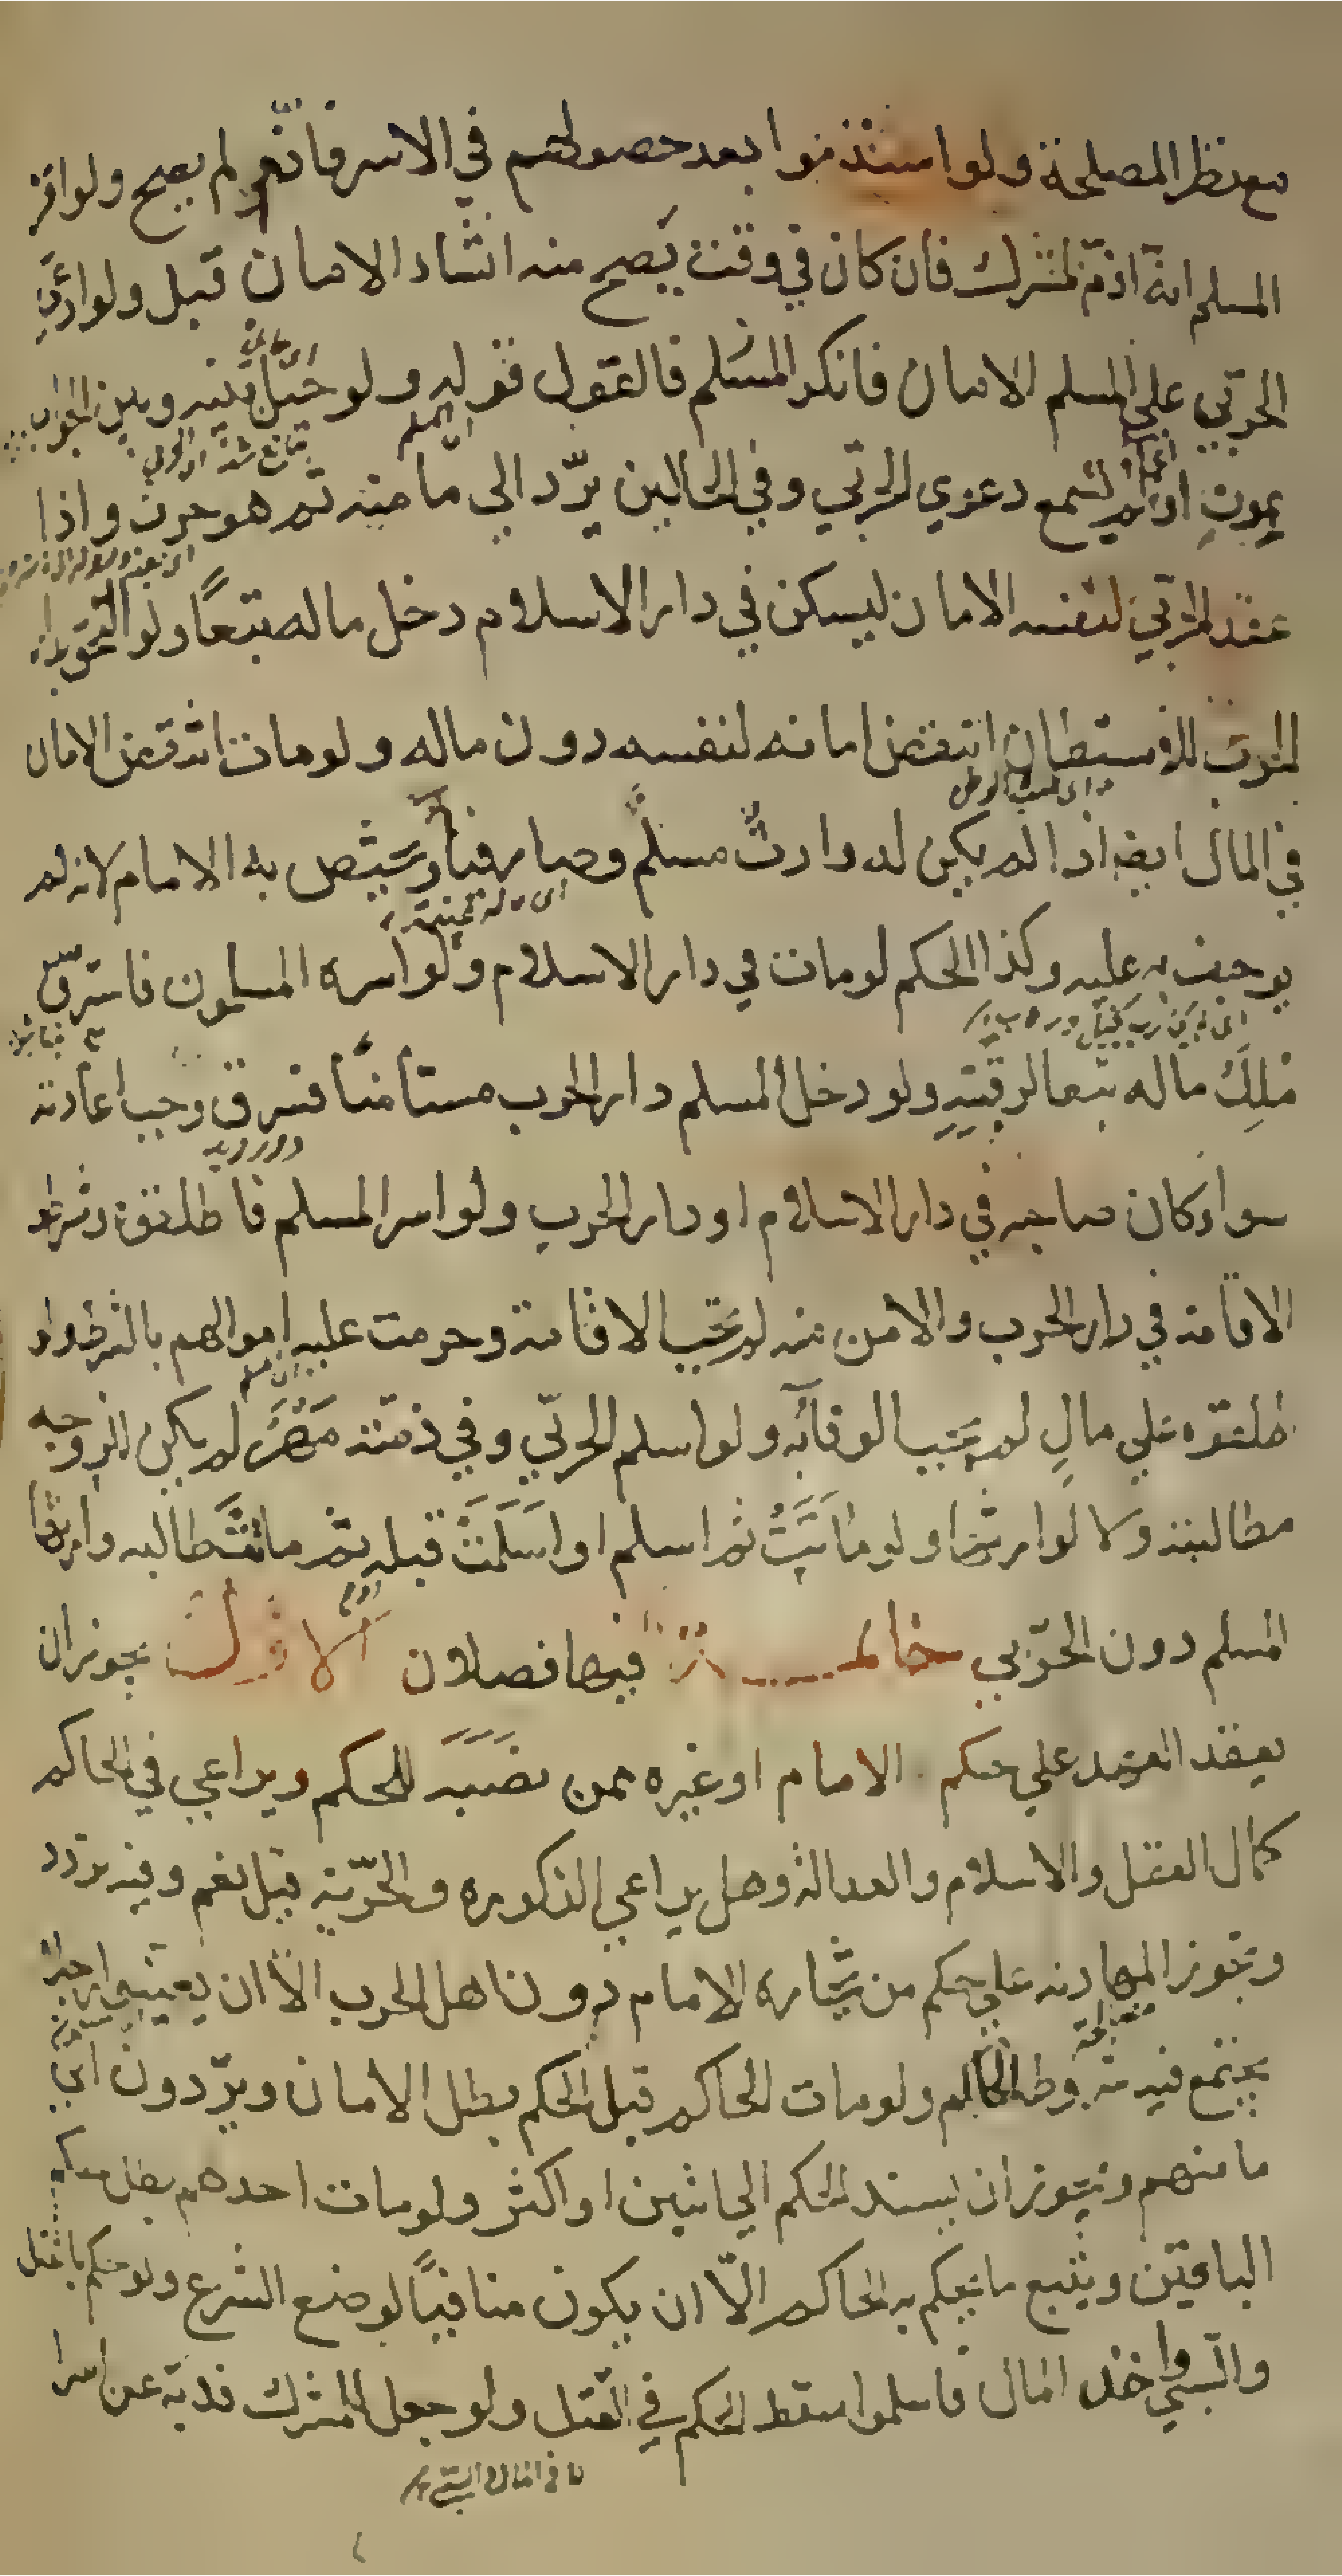 مع نظر المصلحة ولو استذموا بعد حصولهم في الاسر فاذم لم يصح ولو اقر
المسلم انه اذم لمشرك فان كان في وقت يصح منه انشاء الامان قبل ولو ادعى
الحربي على المسلم الامان فانكر المسلم فالقول قوله ولو حيل بينه وبين الجواب
اى المسلم
بموت او اغماء لم تسمع دعوي الحربي وفي الحالين يرد الي مامنه ثم هو حرب واذا
عقد الحربي لنفسه الامان ليسكن في دار الاسلام دخل ماله تبعا ولو التحق بدار
الحرب للاستيطان انتقض امانه لنفسه دون ماله ولو مات انتقض الامان
في المال ايضا اذا لم يكن له وارث مسلم وصار فيئا ويختص به الامام لانه لم
يوجف عليه وكذا الحكم لو مات في دار الاسلام ولو اسره المسلمون فاسترق
ملك ماله تبعا لرقبته ولو دخل المسلم دار الحرب مستامنا فسرق وجب اعادته
سواء كان صاحبه في دار الاسلام او دار الحرب ولو اسر المسلم فاطلقوه وشرطوا
الاقامة في دار الحرب والامن منه لم يجب الاقامة وحرمت عليه اموالهم بالشرط ولو
اطلقوه علي مال لم يجب الوفاء به ولو اسلم الحربي وفي ذمته مهر لم يكن للزوجه
مطالبته ولا لوارثها ولو ماتت ثم اسلم او اسلمت قبله ثم ماتت طالبه وارثها
المسلم دون الحربي خاتمة فيها فصلان الاول يجوز ان
يعقد العهد علي حكم الامام او غيره ممن نصبه للحكم ويراعي في الحاكم
كمال العقل والاسلام والعدالة وهل يراعي الذكوره والحرية قيل نعم وفيه تردد
وتجوز المهادنه علي حكم من يختاره الامام دون اهل الحرب الا ان يعينوا رجلا
يجتمع فيه شروط الحاكم ولو مات الحاكم قبل الحكم بطل الامان ويردون الي
مامنهم ويجوز ان يسند الحكم الي اثنين او اكثر ولو مات احدهم بطل حكم
الباقين ويتبع ما يحكم به الحاكم الا ان يكون منافيا لوضع الشرع ولو حكم بالقتل
والسبي واخذ المال فاسلموا سقط الحكم في القتل ولو جعل للمشرك فدية عن اسرا
لا في المال والسبي